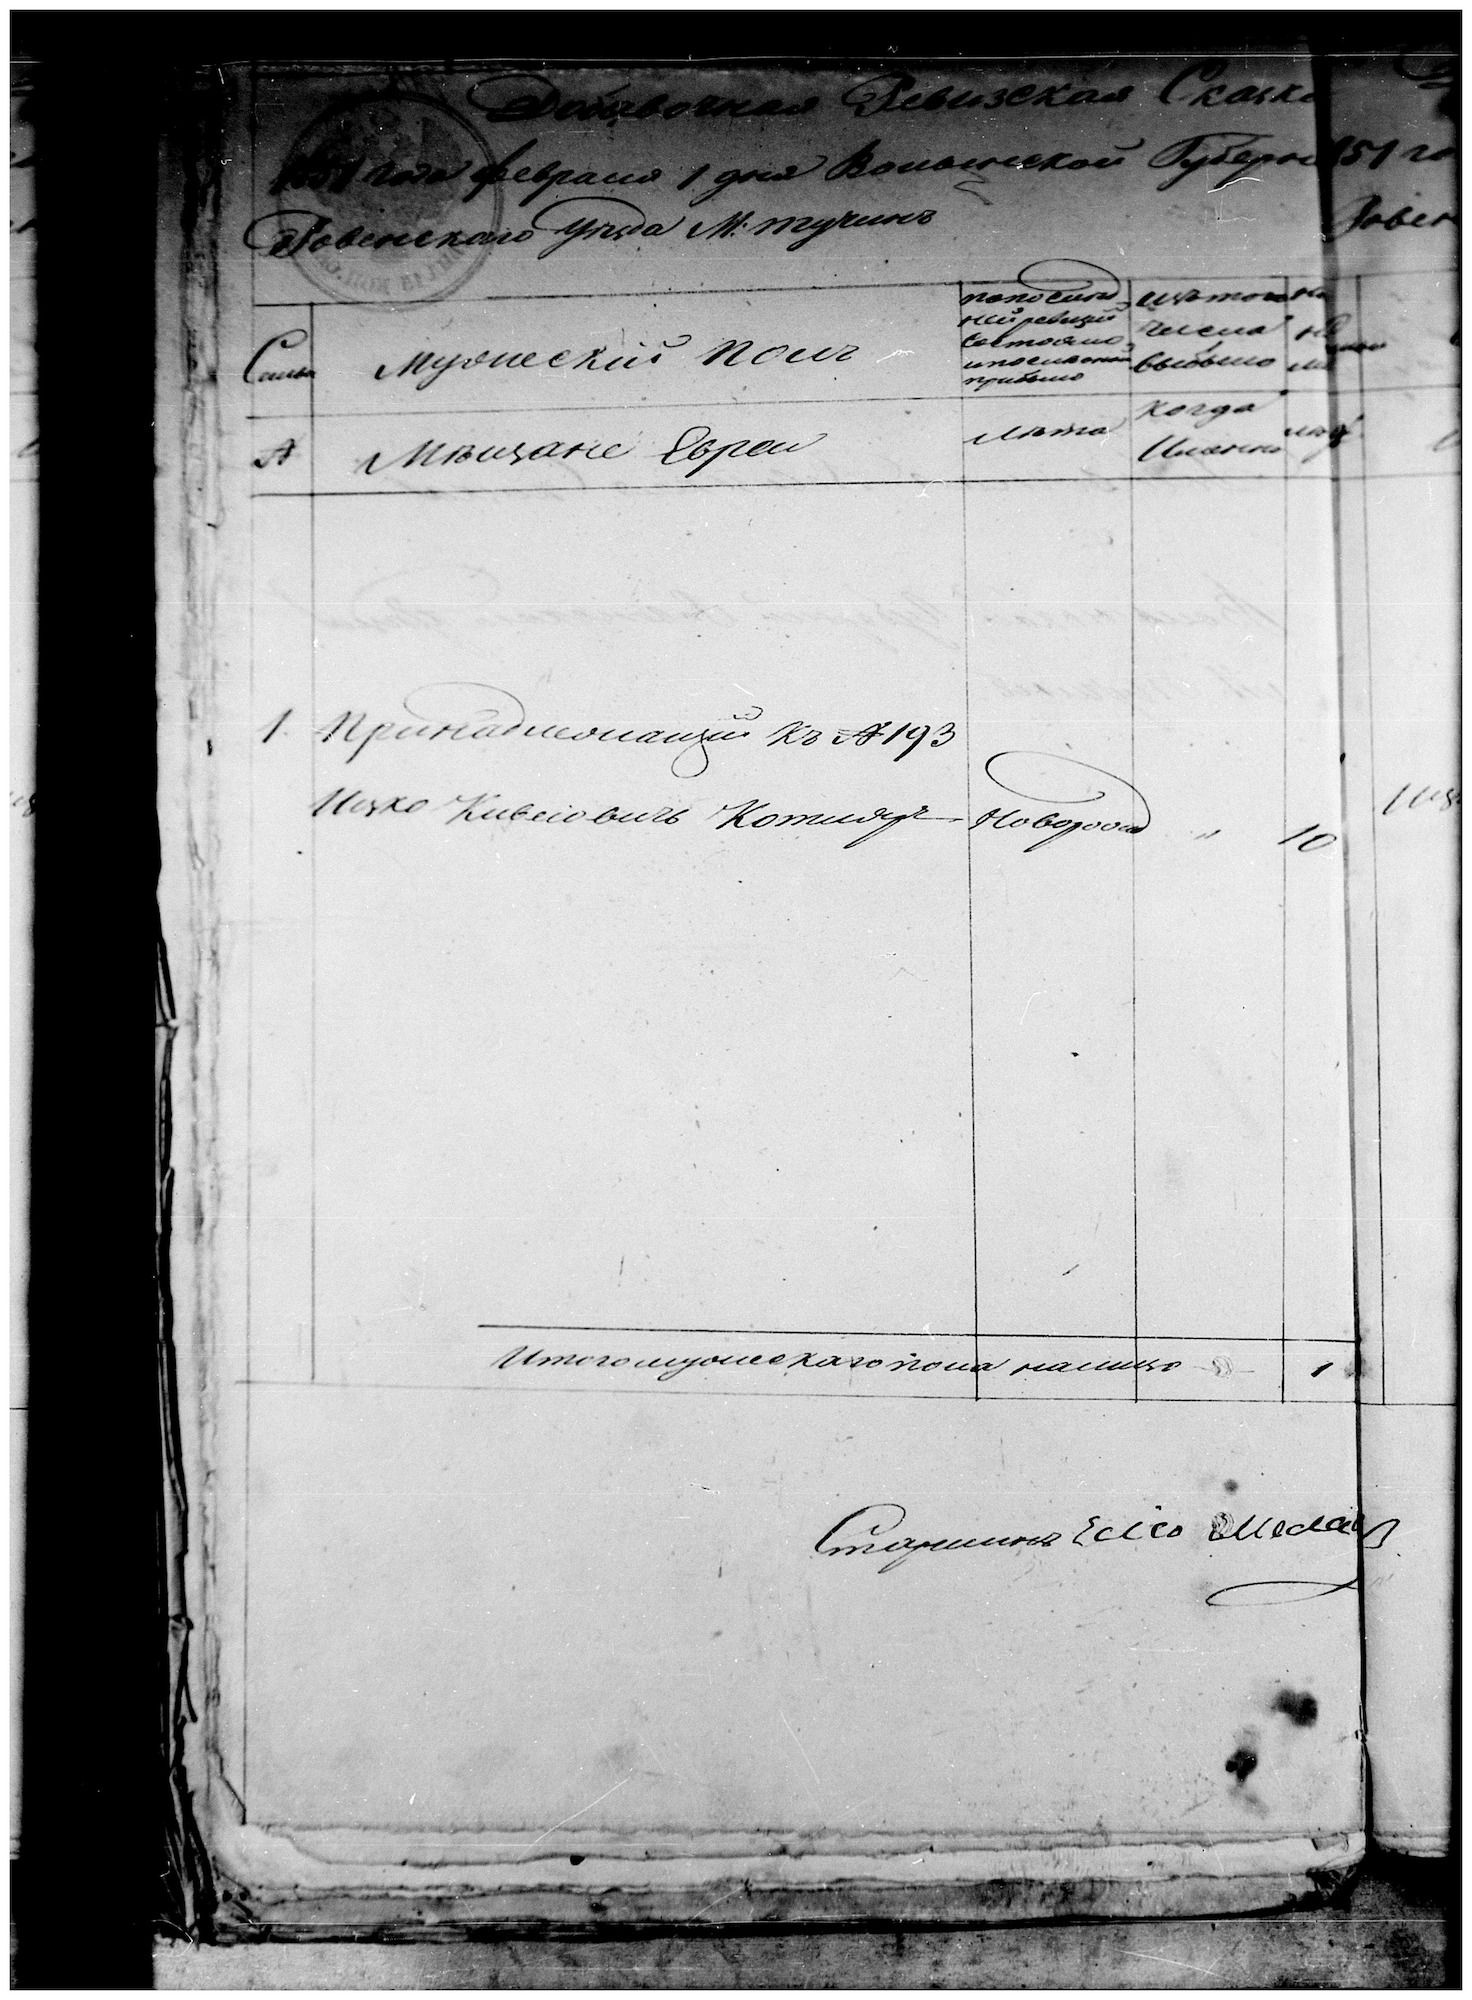 Добавочная Ревизская Сказка
1851 года февраля 1 дня Волынской Губернiи
Ровенского Уѣзда М: Тучинъ
Семьи
Мужескiй полъ
по последней ревизiи состояло и после оной прибыло
изъ того числа выбыло
№
Мѣщане Евреи
Лѣта
когда Именно
1. Принадлежащiй къ № 193
Ицко Кивелiовичъ Котляръ Новорож " 10
Итого мужескаго пола налицо 1
Старшина
51 го
Ровен
Ицк